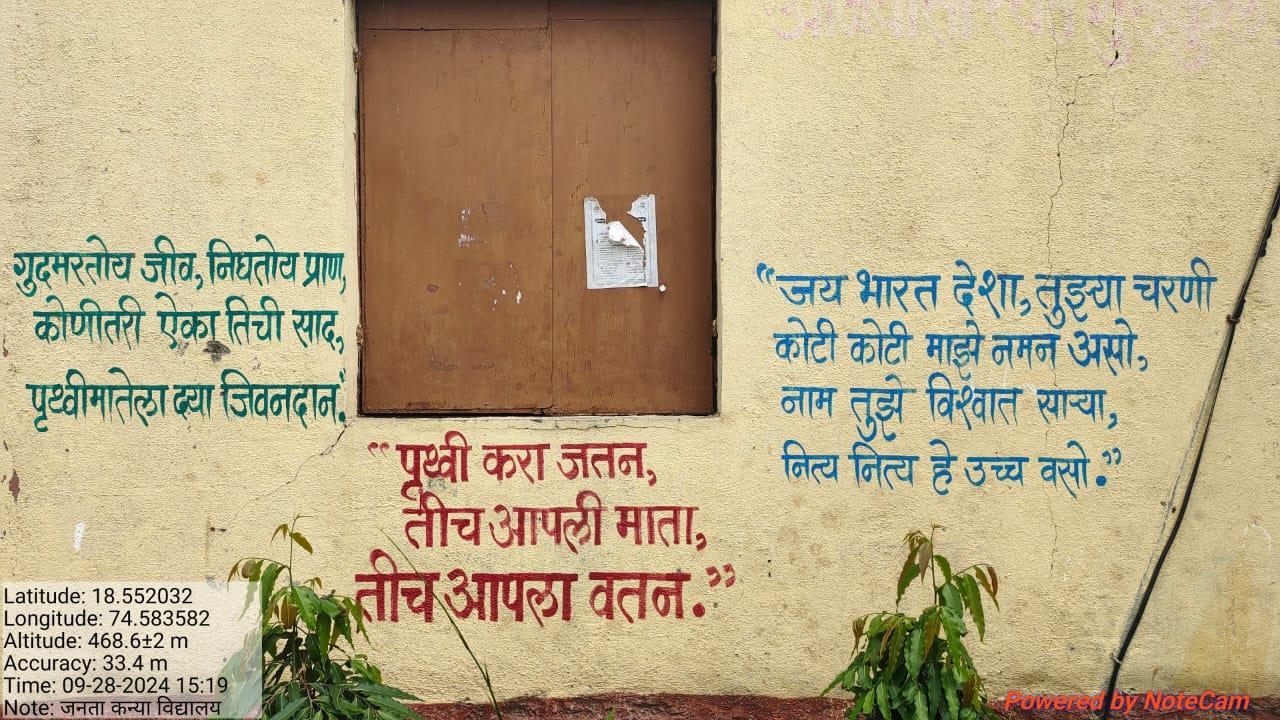 गुदमरतोय जीव, निघतोय प्राण,
कोणीतरी ऐका तिची साद,
पृथ्वीमातेला द्या जिवनदान."
"पृथ्वी करा जतन,
तीच आपली माता,
तीच आपला वतन."
"जय भारत देशा, तुझ्या चरणी
कोटी कोटी माझे नमन असो,
नाम तुझे विश्वात साऱ्या,
नित्य नित्य हे उच्च वसो."
Latitude: 18.552032
Longitude: 74.583582
Altitude: 468.6±2 m
Accuracy: 33.4 m
Time: 09-28-2024 15:19
Note: जनता कन्या विद्यालय
Powered by NoteCam